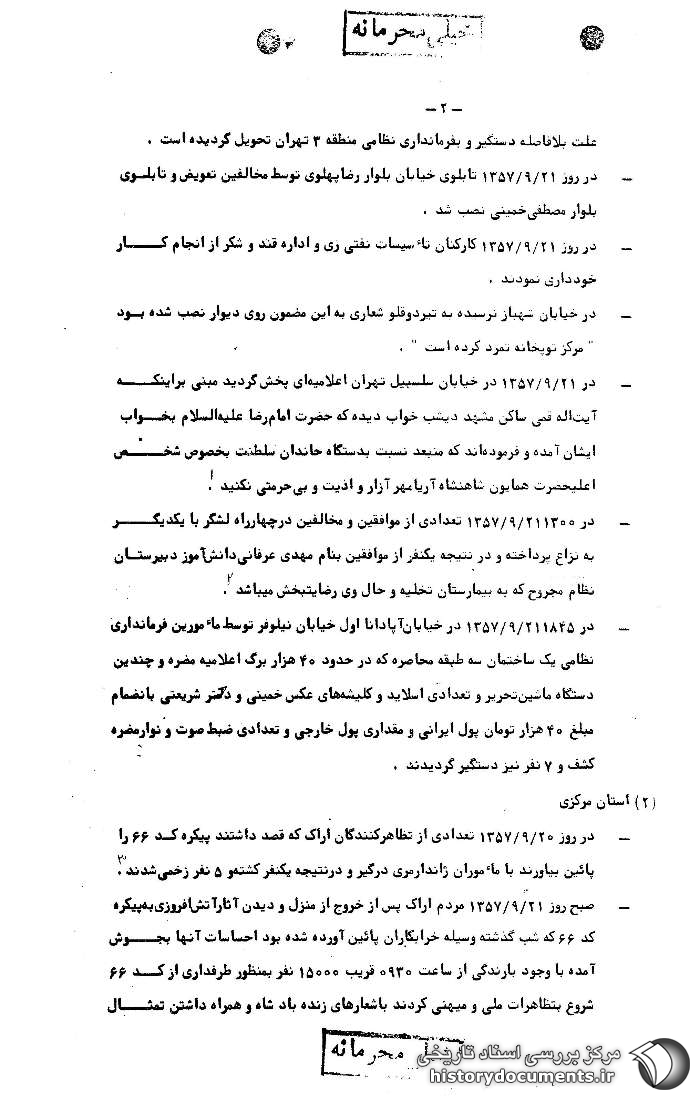 خیلی محرمانه
- ۲ -
علت بلافاصله دستگیر و بفرمانداری نظامی منطقه ۳ تهران تحویل گردیده است .
– در روز ۱۳۵۷/۹/۲۱ تابلوی خیابان بلوار رضاپهلوی توسط مخالفین تعویض و تابلوی
بلوار مصطفی خمینی نصب شد .
– در روز ۱۳۵۷/۹/۲۱ کارکنان تأسیسات نفتی ری و اداره قند و شکر از انجام کار
خودداری نمودند .
– در خیابان شهباز نرسیده به تیردوقلو شعاری به این مضمون روی دیوار نصب شده بود
" مرکز توپخانه تمرد کرده است " .
– در ۱۳۵۷/۹/۲۱ در خیابان سلسبیل تهران اعلامیه‌ای پخش گردید مبنی براینکه
آیت‌اله قمی ساکن مشهد دیشب خواب دیده که حضرت امام رضا علیه‌السلام بخواب
ایشان آمده و فرموده‌اند که منبعد نسبت بدستگاه خاندان سلطنت بخصوص شخص
اعلیحضرت همایون شاهنشاه آریامهر آزار و اذیت و بی‌حرمتی نکنید ۱.
– در ۱۳۵۷/۹/۲۱۱۳۰۰ تعدادی از موافقین و مخالفین درچهارراه لشگر با یکدیگر
به نزاع پرداخته و در نتیجه یکنفر از موافقین بنام مهدی عرفانی دانش‌آموز دبیرستان
نظام مجروح که به بیمارستان تخلیه و حال وی رضایتبخش میباشد ۲.
– در ۱۳۵۷/۹/۲۱۱۸۴۵ در خیابان آپادانا اول خیابان نیلوفر توسط مأمورین فرمانداری
نظامی یک ساختمان سه طبقه محاصره که در حدود ۴۰ هزار برگ اعلامیه مضره و چندین
دستگاه ماشین تحریر و تعدادی اسلاید و کلیشه‌های عکس خمینی و دکتر شریعتی بانضمام
مبلغ ۴۰ هزار تومان پول ایرانی و مقداری پول خارجی و تعدادی ضبط صوت و نوارمضره
کشف و ۷ نفر نیز دستگیر گردیدند .
(۲) استان مرکزی
– در روز ۱۳۵۷/۹/۲۰ تعدادی از تظاهرکنندگان اراک که قصد داشتند پیکره کد ۶۶ را
پائین بیاورند با مأموران ژاندارمری درگیر و درنتیجه یکنفر کشته و ۵ نفر زخمی شدند ۳.
– صبح روز ۱۳۵۷/۹/۲۱ مردم اراک پس از خروج از منزل و دیدن آثار آتش‌افروزی به پیکره
کد ۶۶ که شب گذشته وسیله خرابکاران پائین آورده شده بود احساسات آنها بجوش
آمده با وجود بارندگی از ساعت ۰۹۳۰ قریب ۱۵۰۰۰ نفر بمنظور طرفداری از کد ۶۶
شروع بتظاهرات ملی و میهنی کردند باشعارهای زنده باد شاه و همراه داشتن تمثال
محرمانه
مرکز بررسی اسناد تاریخی
historydocuments.ir